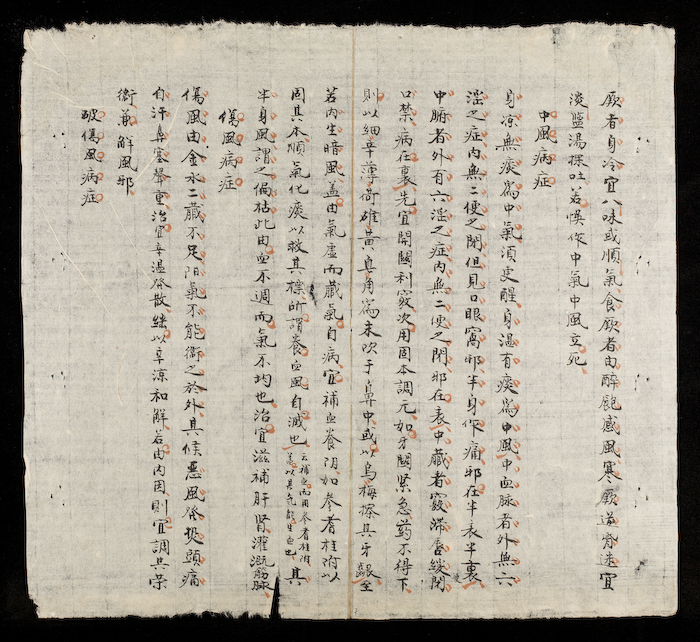 厥者身冷宜八味或順氣食厥者由醉飽感風寒厥逆昏迷宜
淡盬湯探吐若悞作中氣中風立死
中風病症
身凉無痰爲中氣須㬰醒身溫有痰爲中風中血脉者外無六
淫之症內無二便之閉但見口眼窩邪半身作痛邪在半表半裏
中腑者外有六淫之症內無二便之閉邪在表中藏者竅滯唇緩閉
口禁病在裏先宜開關利竅次用固本調元如牙關緊急药不得下
則以細辛薄荷雄黃皂角爲末吹于鼻中或以烏梅擦其牙齦至
若內生暗風盖由氣虛而藏氣自病宜補血養阴如參者桂附以
固其本順氣化痰以救其標所謂養血風自滅也 云補血而用參者桂附 者以其氣能生血也 其
半身風謂之偏枯此由血不調而氣不均也治宜滋補肝肾灌溉筋脉
傷風病症
傷風由金水二藏不足阳氣不能衛之於外其候惡風發热頭痛
自汗鼻塞聲重治宜辛溫發散継以辛凉和解若由內因則宜調其榮
衛兼解風邪
破傷風病症